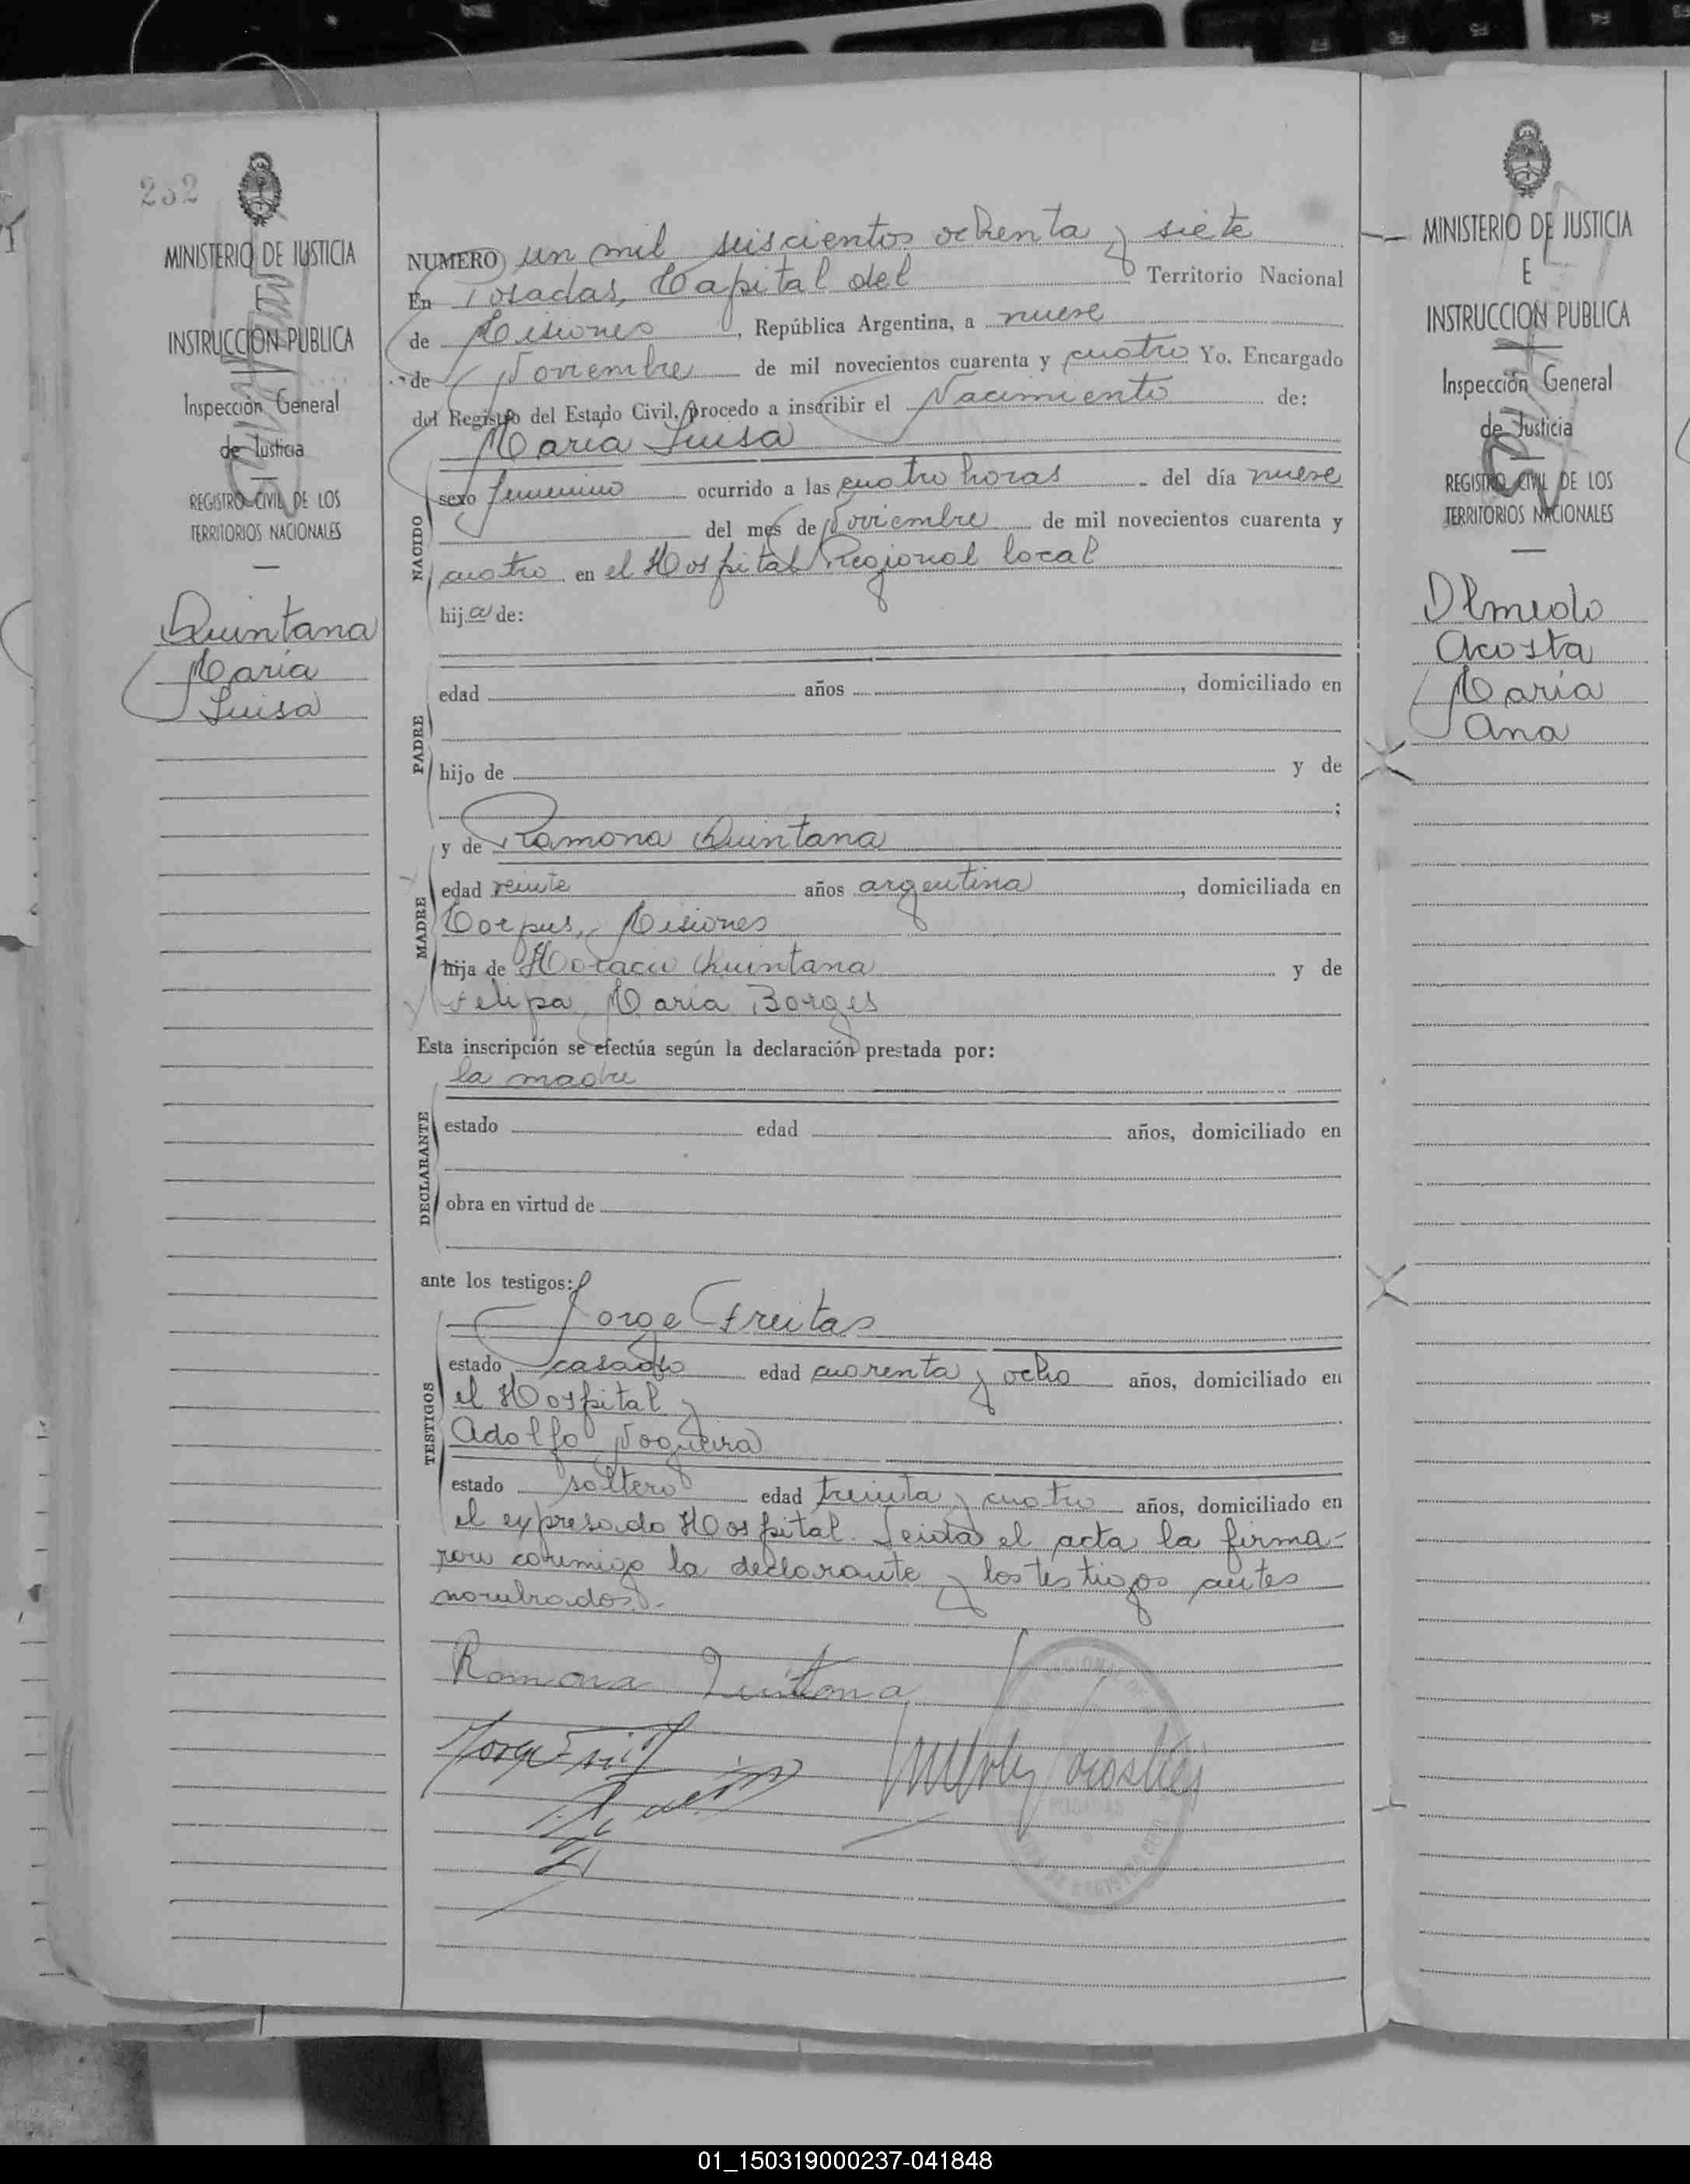 232
MINISTERIO DE JUSTICIA
INSTRUCCION PUBLICA
Inspección General
de Justicia
REGISTRO CIVIL DE LOS
TERRITORIOS NACIONALES
Quintana
Maria
Luisa
NUMERO un mil seiscientos ochenta y siete
En Posadas, Capital del Territorio Nacional
de Misiones, República Argentina, a nueve
de Noviembre de mil novecientos cuarenta y cuatro Yo. Encargado
del Registro del Estado Civil, procedo a inscribir el Nacimiento de:
Maria Luisa
NACIDO
sexo femenino ocurrido a las cuatro horas del día nueve
del mes de Noviembre de mil novecientos cuarenta y
cuatro en el Hospital Regional local
hija de:
PADRE
edad años , domiciliado en
hijo de y de
;
MADRE
y de Ramona Quintana
edad veinte años argentina, domiciliada en
Corpus, Misiones
hija de Horacio Quintana y de
Felipa Maria Borges
Esta inscripción se efectúa según la declaración prestada por:
la madre
DECLARANTE
estado edad años, domiciliado en
obra en virtud de
ante los testigos:
Jorge Freitas
TESTIGOS
estado casado edad cuarenta y ocho años, domiciliado en
el Hospital y
Adolfo Nogueira
estado soltero edad treinta y cuatro años, domiciliado en
el expresado Hospital. Leida el acta la firma-
ron conmigo la declarante y los testigos antes
nombrados.-
Ramona Quintana
POSADAS
MINISTERIO DE JUSTICIA
E
INSTRUCCION PUBLICA
Inspección General
de Justicia
REGISTRO CIVIL DE LOS
TERRITORIOS NACIONALES
Olmedo
Acosta
Maria
Ana
01_150319000237-041848